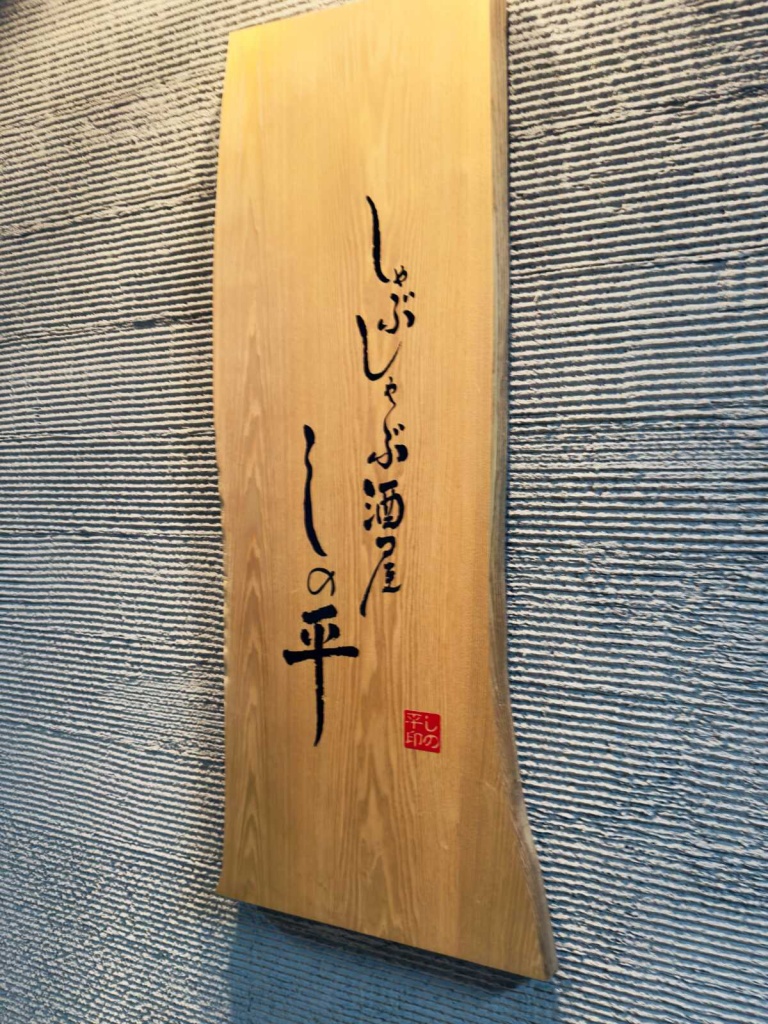 しゃぶしゃぶ酒屋
しの平
しの
平印